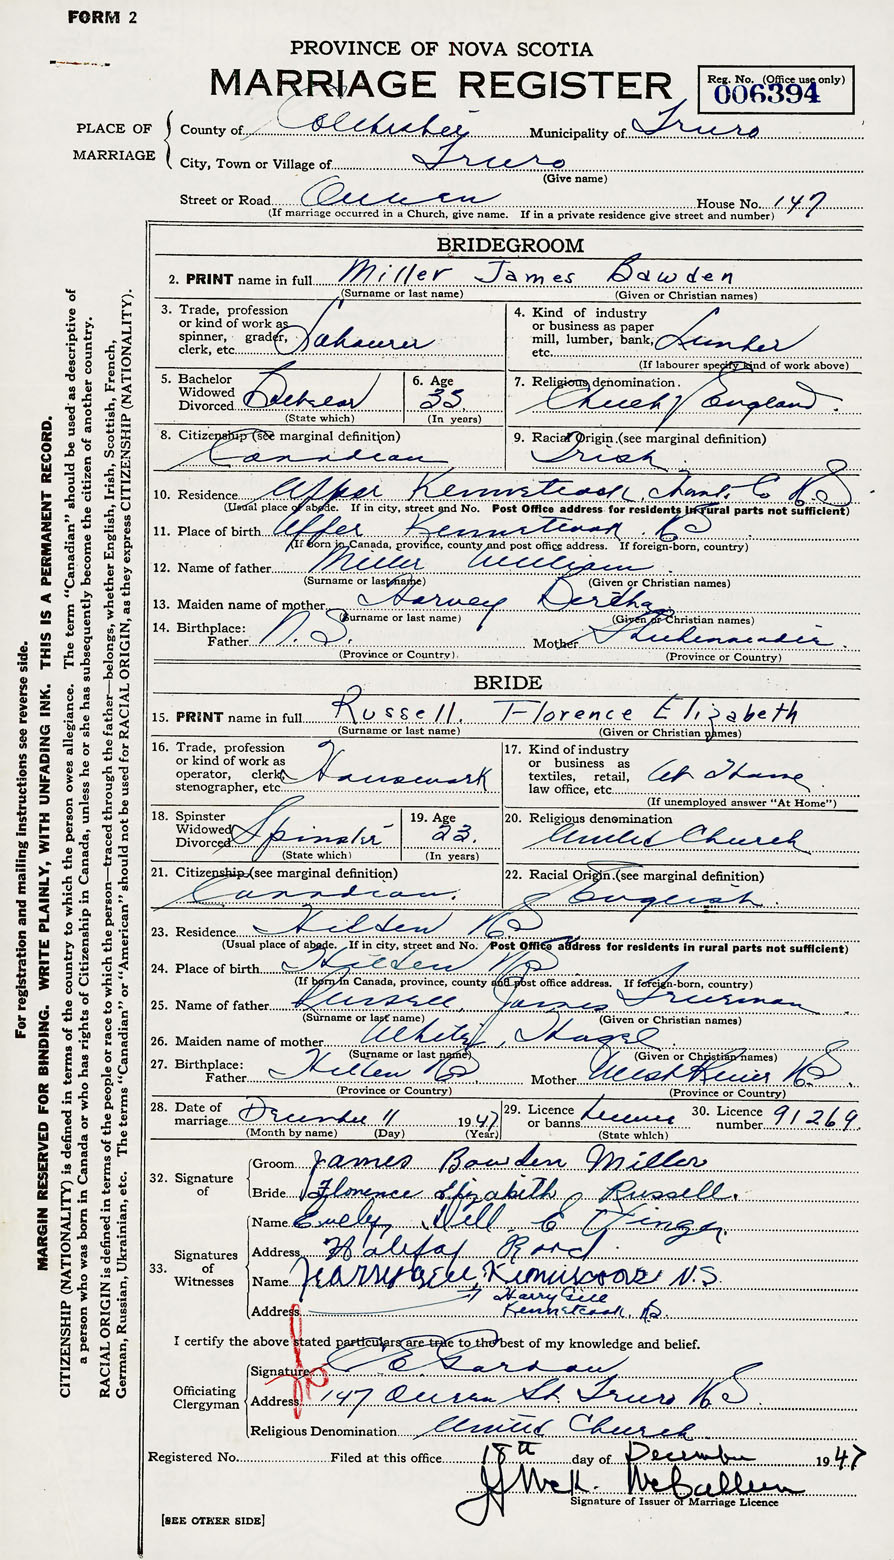 FORM 2
PROVINCE OF NOVA SCOTIA
MARRIAGE REGISTER
Reg. No. (Office use only)
006394
PLACE OF MARRIAGE
County of Colchester Municipality of Truro
City, Town or Village of Truro
(Give name)
Street or Road Queen House No. 147
(If marriage occurred in a Church, give name. If in a private residence give street and number)
BRIDEGROOM
2. PRINT name in full Miller James Bowden
(Surname or last name) (Given or Christian names)
3. Trade, profession or kind of work as spinner, grader, clerk, etc. Labourer
4. Kind of industry or business as paper mill, lumber, bank, etc. Lumber
(If labourer specify kind of work above)
5. Bachelor Widowed Divorced Bachelor
(State which)
6. Age 33
(In years)
7. Religious denomination. Church of England.
8. Citizenship (see marginal definition) Canadian
9. Racial Origin (see marginal definition) Irish
10. Residence Upper Kennetcook, Hants Co N.S
(Usual place of abode. If in city, street and No. Post Office address for residents in rural parts not sufficient)
11. Place of birth Upper Kennetcook N.S
(If born in Canada, province, county and post office address. If foreign-born, country)
12. Name of father Miller William
(Surname or last name) (Given or Christian names)
13. Maiden name of mother Harvey Bertha
(Surname or last name) (Given or Christian names)
14. Birthplace: Father N.S. Mother Shubenacadie
(Province or Country) (Province or Country)
BRIDE
15. PRINT name in full Russell. Florence Elizabeth
(Surname or last name) (Given or Christian names)
16. Trade, profession or kind of work as operator, clerk, stenographer, etc. Housework
17. Kind of industry or business as textiles, retail, law office, etc. At Home
(If unemployed answer "At Home")
18. Spinster Widowed Divorced Spinster
(State which)
19. Age 23.
(In years)
20. Religious denomination United Church
21. Citizenship (see marginal definition) Canadian.
22. Racial Origin (see marginal definition) English.
23. Residence Hilden N.S
(Usual place of abode. If in city, street and No. Post Office address for residents in rural parts not sufficient)
24. Place of birth Hilden N.S
(If born in Canada, province, county and post office address. If foreign-born, country)
25. Name of father Russell, James Freeman
(Surname or last name) (Given or Christian names)
26. Maiden name of mother White, Hazel
(Surname or last name) (Given or Christian names)
27. Birthplace: Father Hilden N.S. Mother West River N.S.
(Province or Country) (Province or Country)
28. Date of marriage December 11 1947
(Month by name) (Day) (Year)
29. Licence or banns Licence
(State which)
30. Licence number 91269.
32. Signature of
Groom James Bowden Miller
Bride Florence Elizabeth Russell.
33. Signatures of Witnesses
Name Evelyn
Address Halifax Road
Name Harry Gill, Kennetcook N.S.
Harry Gill
Address Kennetcook, N.S.
I certify the above stated particulars are true to the best of my knowledge and belief.
Officiating Clergyman
Signature C E Gordon
Address 147 Queen St. Truro N.S
Religious Denomination United Church
Registered No. Filed at this office 18th day of December 1947
Signature of Issuer of Marriage Licence
[SEE OTHER SIDE]
For registration and mailing instructions see reverse side.
MARGIN RESERVED FOR BINDING. WRITE PLAINLY, WITH UNFADING INK. THIS IS A PERMANENT RECORD.
CITIZENSHIP (NATIONALITY) is defined in terms of the country to which the person owes allegiance. The term "Canadian" should be used as descriptive of
a person who was born in Canada or who has rights of Citizenship in Canada, unless he or she has subsequently become the citizen of another country.
RACIAL ORIGIN is defined in terms of the people or race to which the person—traced through the father—belongs, whether English, Irish, Scottish, French,
German, Russian, Ukrainian, etc. The terms "Canadian" or "American" should not be used for RACIAL ORIGIN, as they express CITIZENSHIP (NATIONALITY).